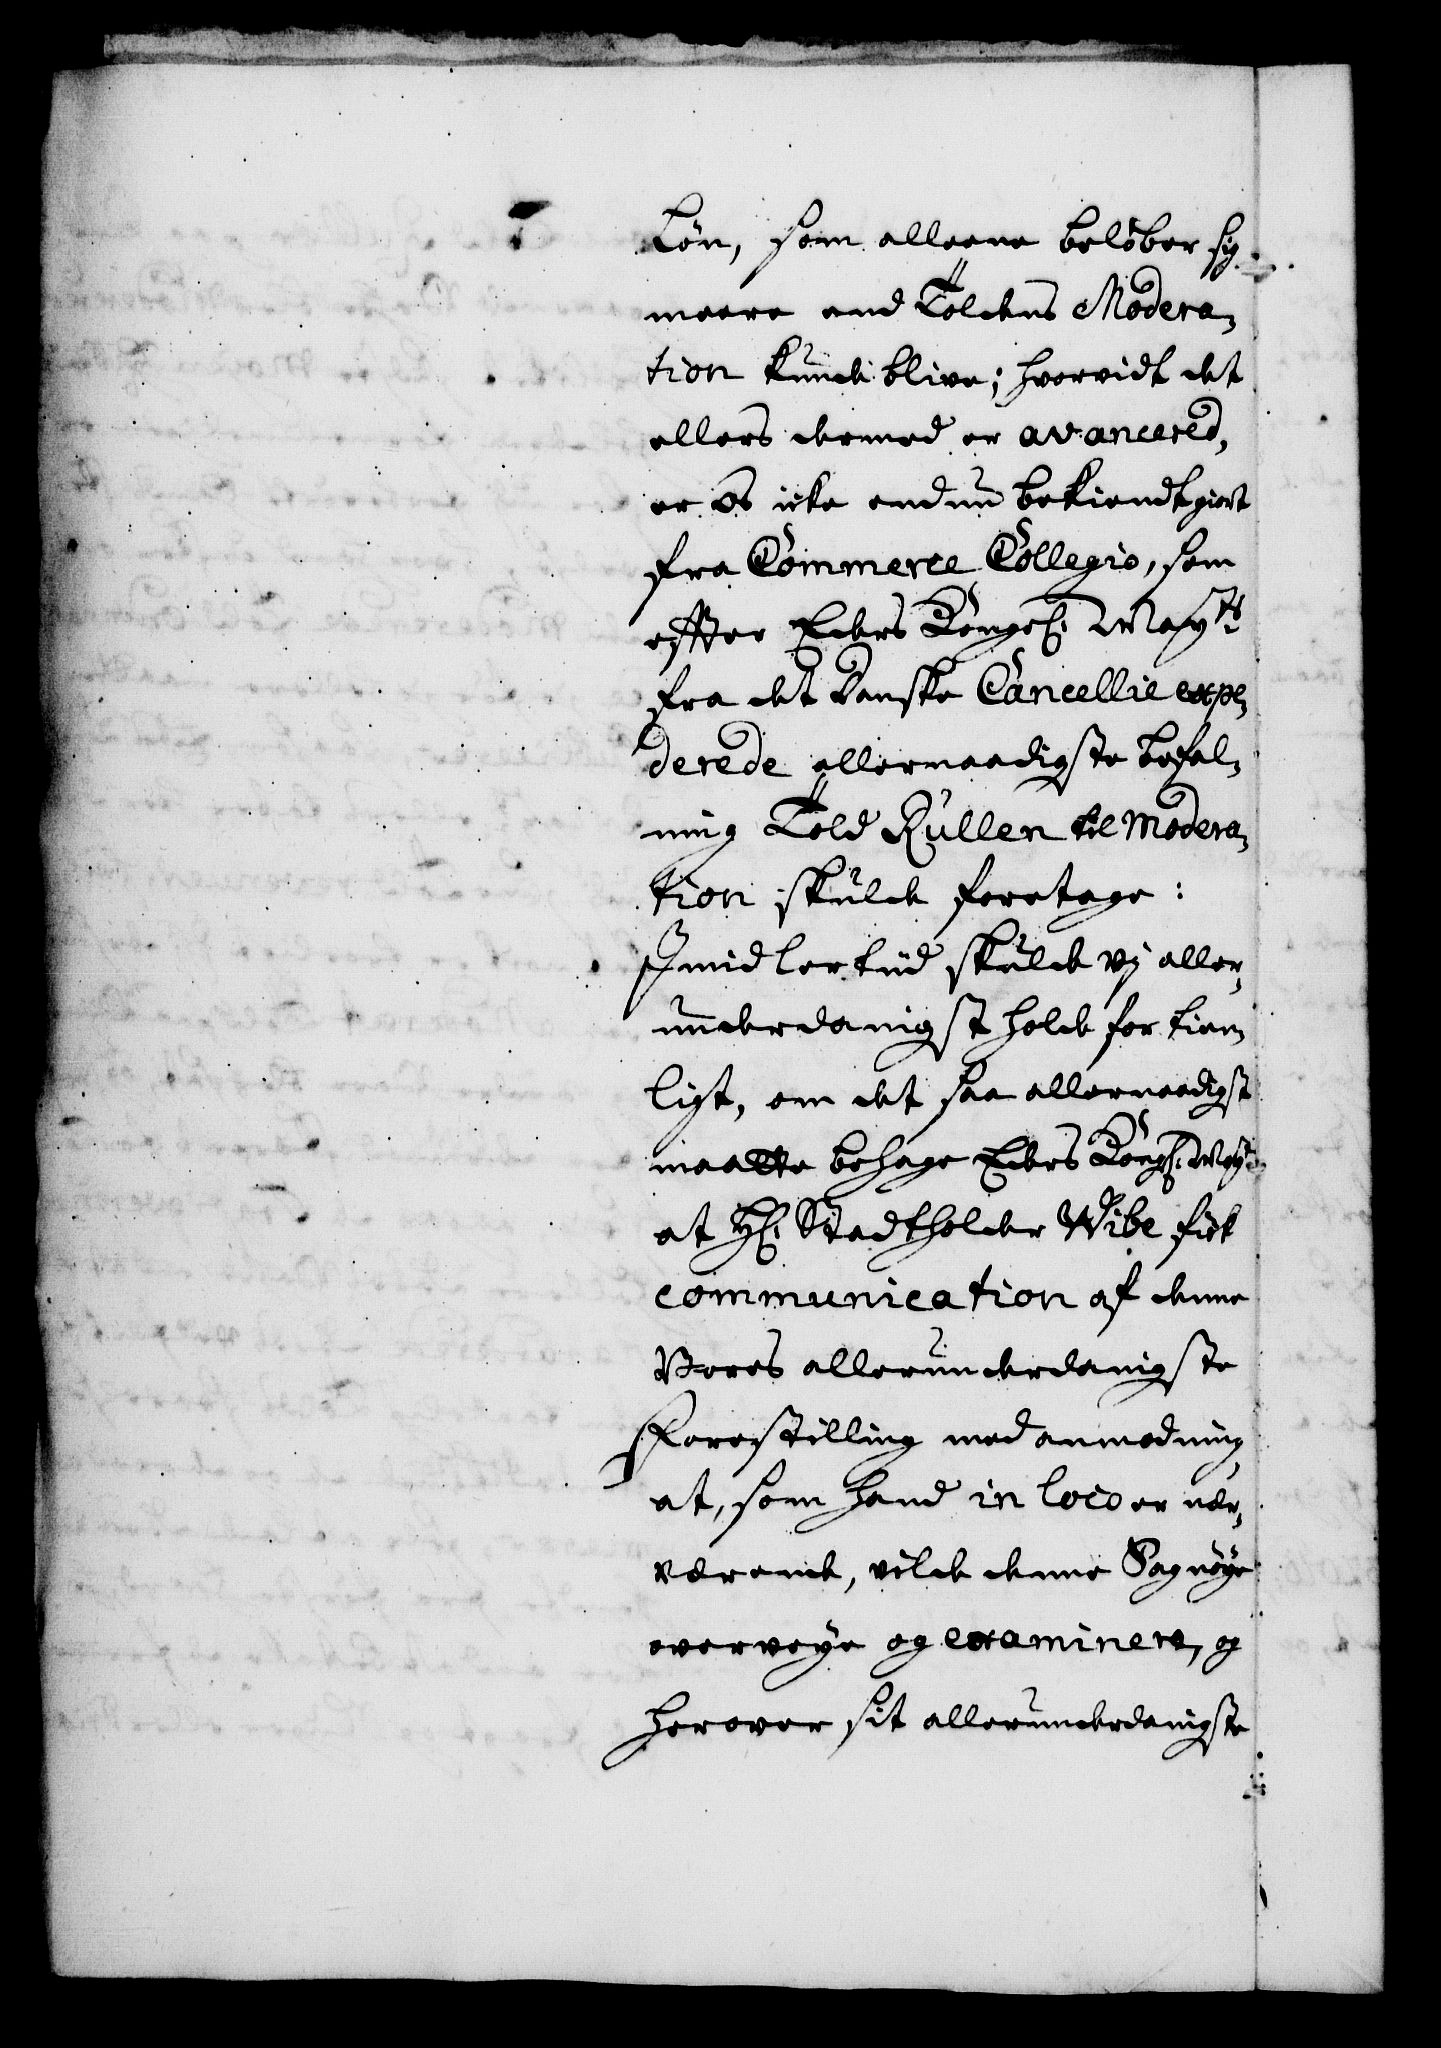 Løn, som alleene beløber sig
meere end Toldens Modera-
tion kunde blive; hvorvidt det
ellers dermed er avancered,
er os icke endnu bekiendtgiort
fra Commerce Collegio, som
effter Eders Kongel: Mayts
fra det danske Cancellie expe-
derede allernaadigste befal-
ning Told Rullen til modera-
tion skulde foretage:
Imidlertiid skulde vj aller-
underdanigst holde for tien-
ligt, om det saa allernaadigst
maatte behage Eders Kongl: Mayt
at Hr: Stadtholder Wibe fick
communication af denne
Vores allerunderdanigste
Forestilling med anmodning
at, som hand in loco er nær-
værende, vilde denne Sag nøye
overveye og examinere, og
herover sit allerunderdanigste